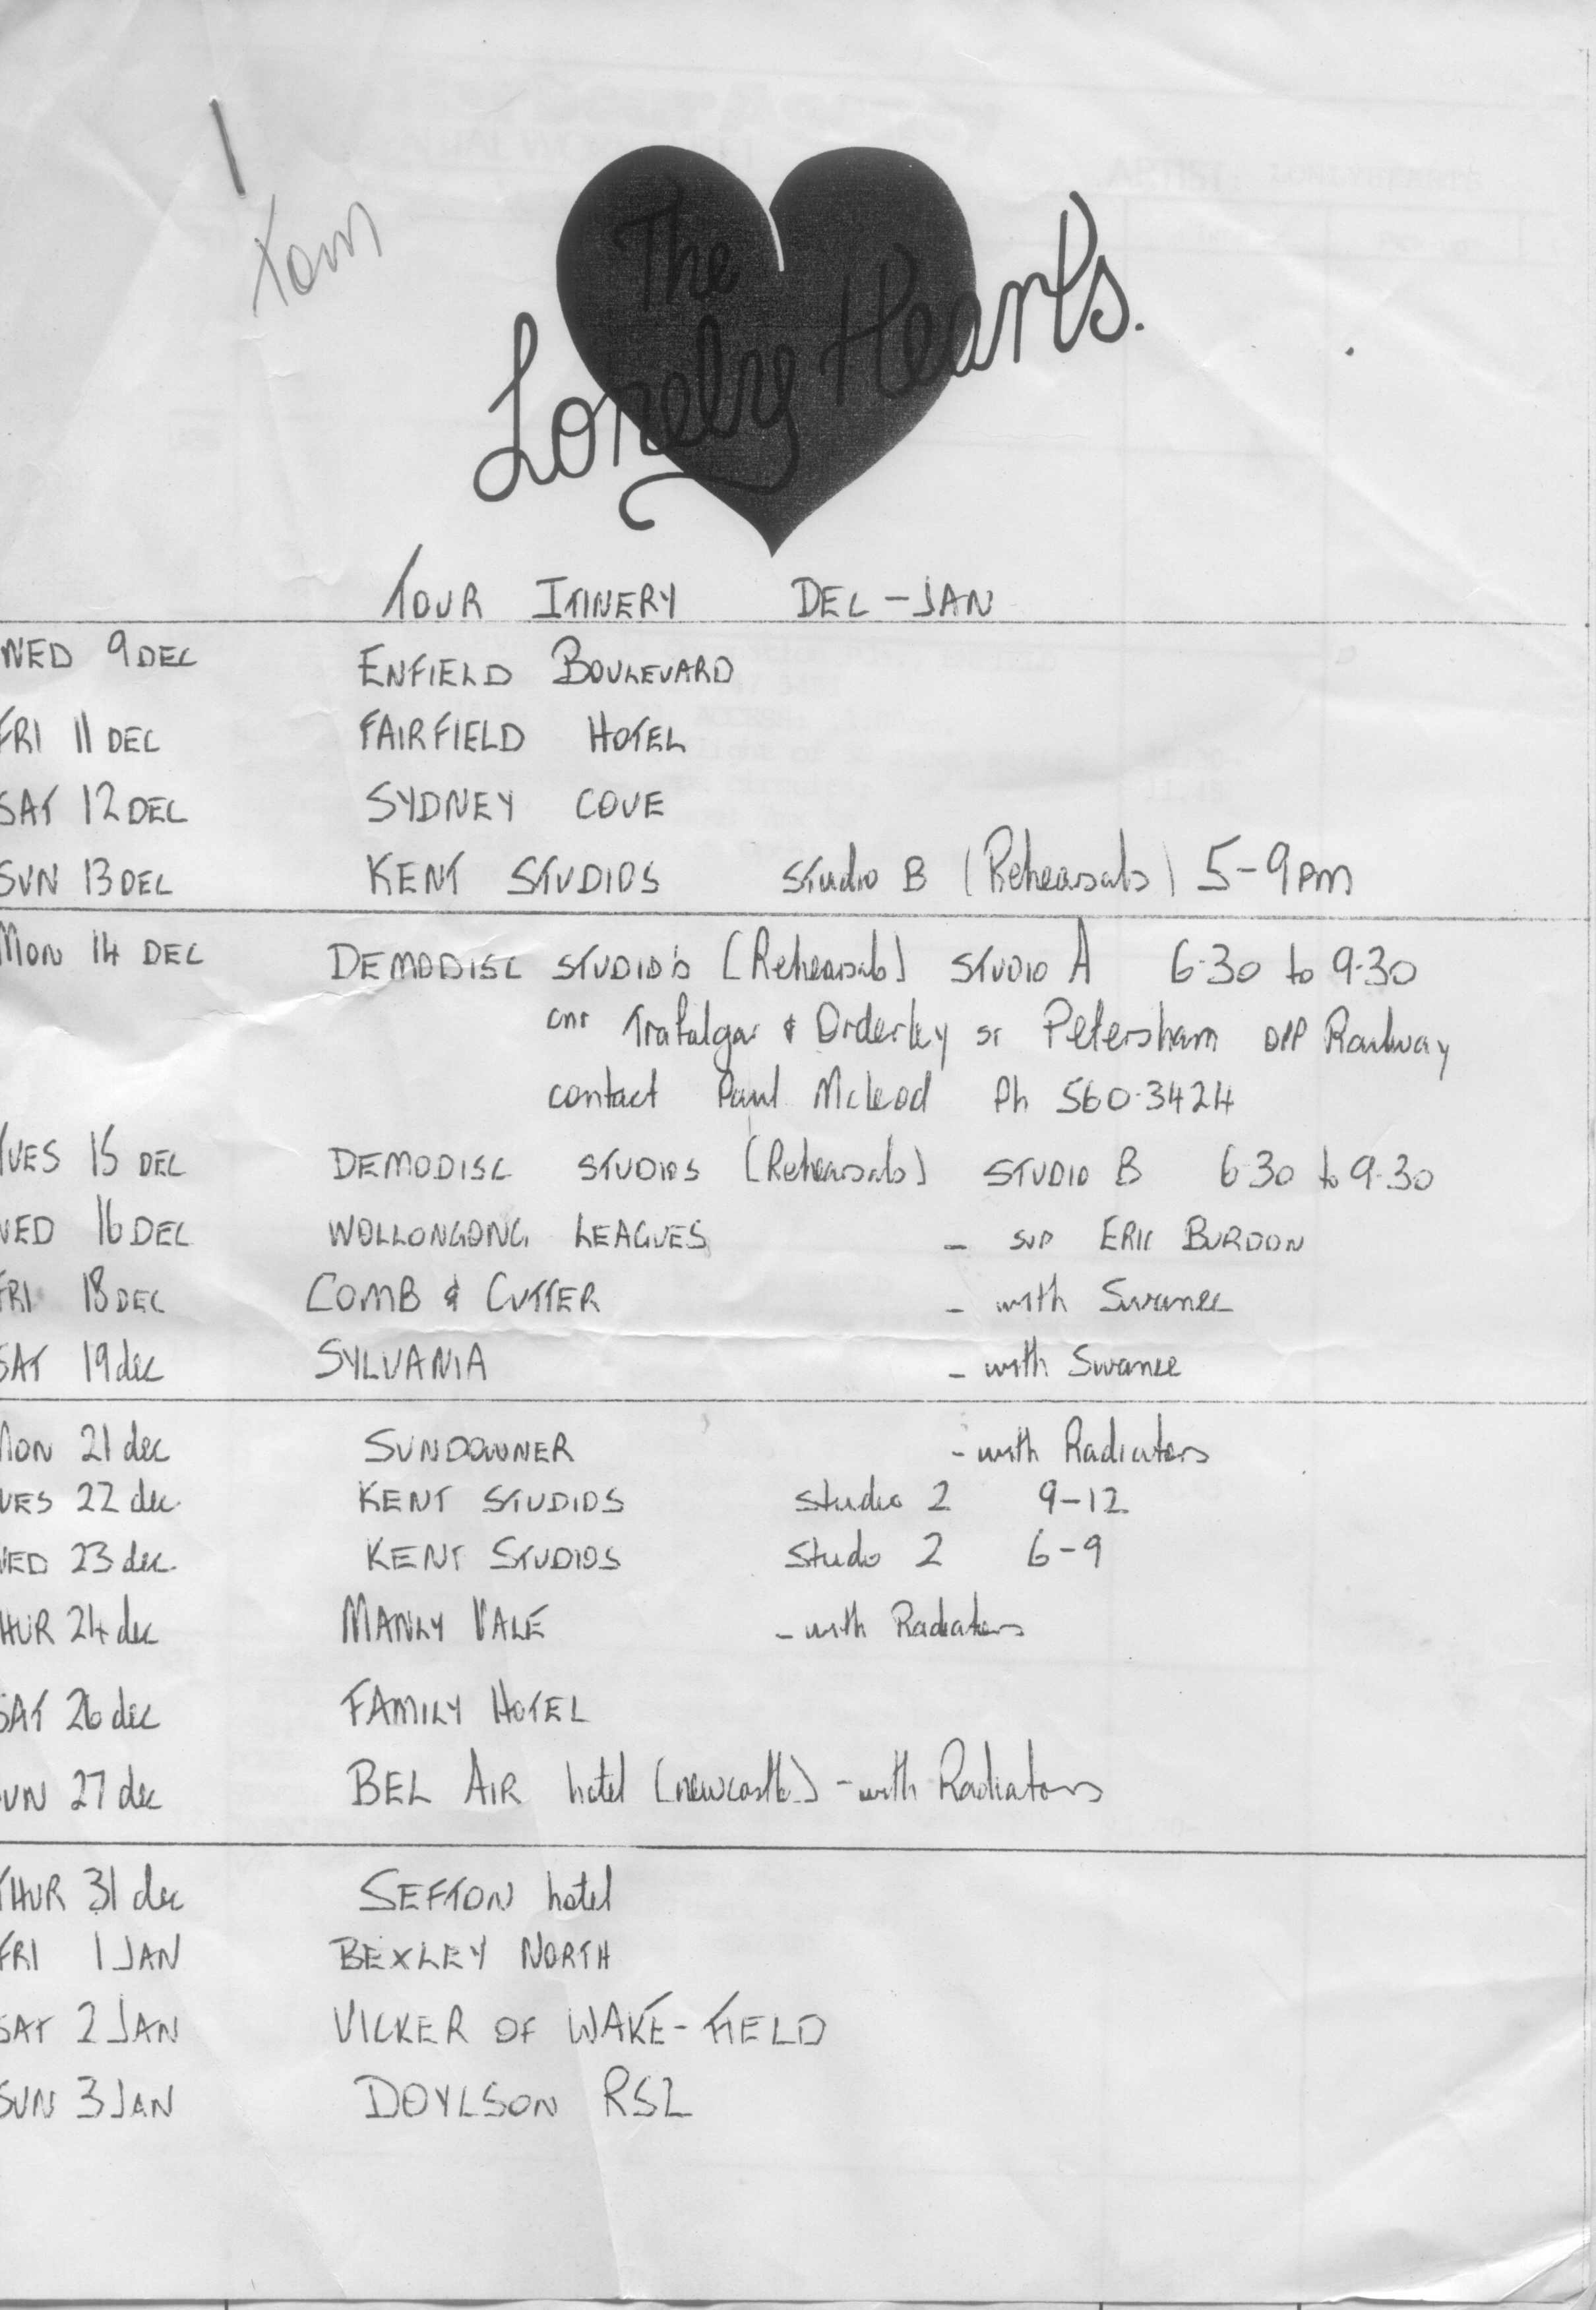 Tom
The
Lonely Hearts.
TOUR ITINERY DEC-JAN
WED 9 DEC ENFIELD BOULEVARD
FRI 11 DEC FAIRFIELD HOTEL
SAT 12 DEC SYDNEY COVE
SUN 13 DEC KENT STUDIOS Studio B (Rehearsals) 5-9 pm
MON 14 DEC DEMODISC STUDIO'S (Rehearsals) STUDIO A 6.30 to 9.30
cnr Trafalgar & Orderley ST Petersham OPP Railway
contact Paul McLeod Ph 560.3424
TUES 15 DEC DEMODISC STUDIOS (Rehearsals) STUDIO B 6.30 to 9.30
WED 16 DEC WOLLONGONG LEAGUES - SUP ERIC BURDON
FRI 18 DEC COMB & CUTTER - with Swanee
SAT 19 dec SYLVANIA - with Swanee
MON 21 dec SUNDOWNER - with Radiators
UES 22 dec. KENT STUDIOS studio 2 9-12
WED 23 dec. KENT STUDIOS studo 2 6-9
HUR 24 dec MANLY VALE - with Radiators
SAT 26 dec FAMILY HOTEL
UN 27 dec BEL AIR hotel (newcastle) - with Radiators
THUR 31 dec SEFTON hotel
FRI 1 JAN BEXLEY NORTH
SAT 2 JAN VICKER OF WAKE-FIELD
SUN 3 JAN DOYLSON RSL